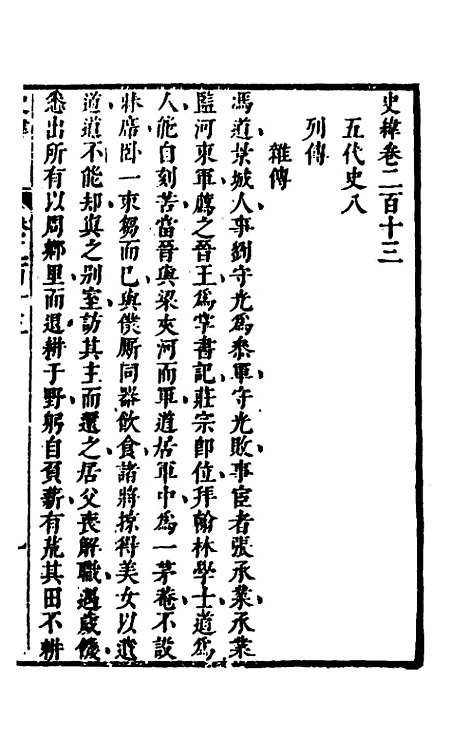 史緯卷二百十三
五代史八
列傳
雜傳
馮道景城人事劉守光爲叅軍守光敗事宦者張承業承業
監河東軍薦之晉王爲掌書記莊宗即位拜翰林學士道爲
人能自刻苦當晉與梁夾河而軍道居軍中爲一茅菴不設
牀席卧一束芻而已與僕厮同器飲食諸將掠得美女以遺
道道不能却與之别室訪其主而還之居父喪解職遇歲饑
悉出所有以周鄉里而退耕于野躬自負薪有荒其田不耕